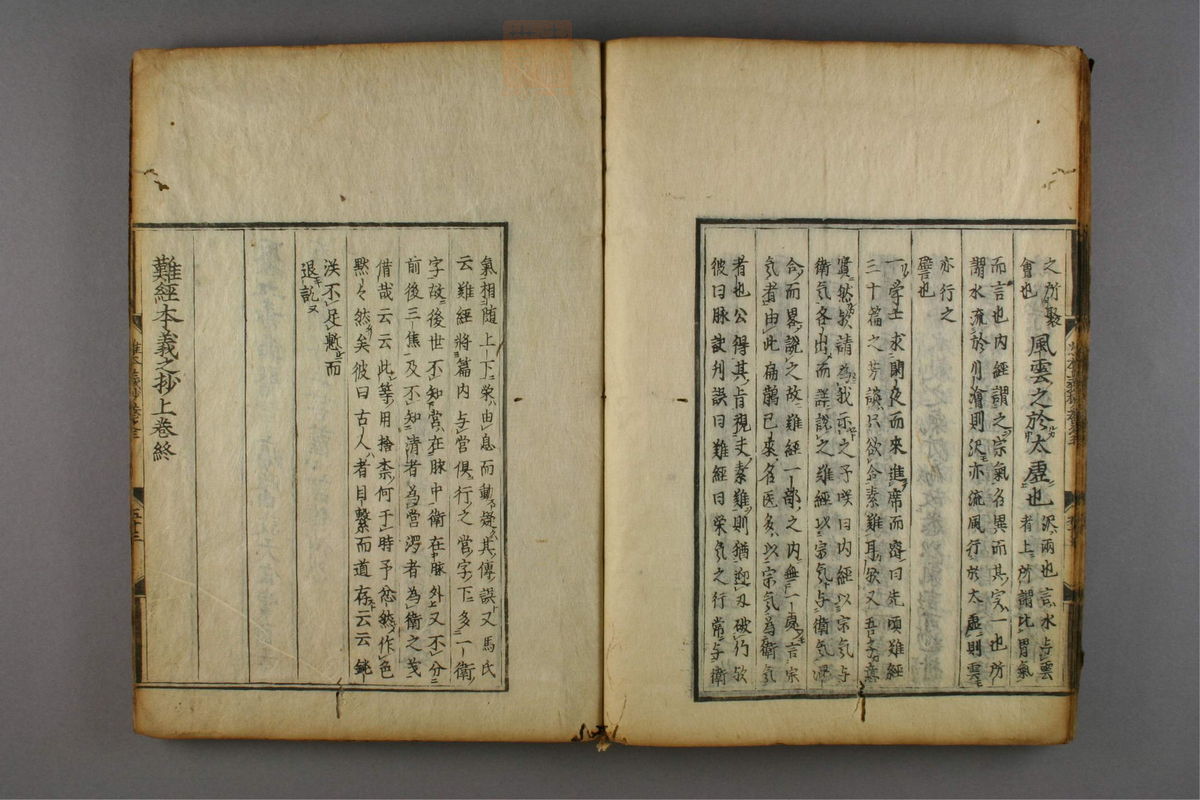 之所聚 風雲之於太虛也 沢雨也言水与雲
會也 者上所謂比胃氣
而言也内經謂之宗氣名異而其宗一也所
謂水流於川澮則沢亦流風行於太虛則雲
亦行之
譬也
一學士求閑夜而來進席而齊曰先頃難經
三十篇之芳談只欲合素難耳欤又吾子意
實然欤請為我示之予咲曰内經以宗気与
衛気各出而詳説之難經以宗気与衛気
合而畧説之故難經一部之内無一處言宗
気者由此扁鵲已來名医多以宗气為衛気
者也公得其旨視夫素難則猶迎刃破竹欤
彼曰脉訣刋誤曰難經曰栄気之行常与衛
氣相随上下栄由息而動疑其傳誤又馬氏
云難經將篇内与営俱行之営字下多一衛
字故後世不知営在脉中衛在脉外又不分
前後三焦及不知清者為営濁者為衛之義
借哉云云此等用捨柰何于時予忿然作色
黙々然矣彼曰古人者目繋而道存云云
淡不足慙而
退訖又
難經本義之抄上卷終